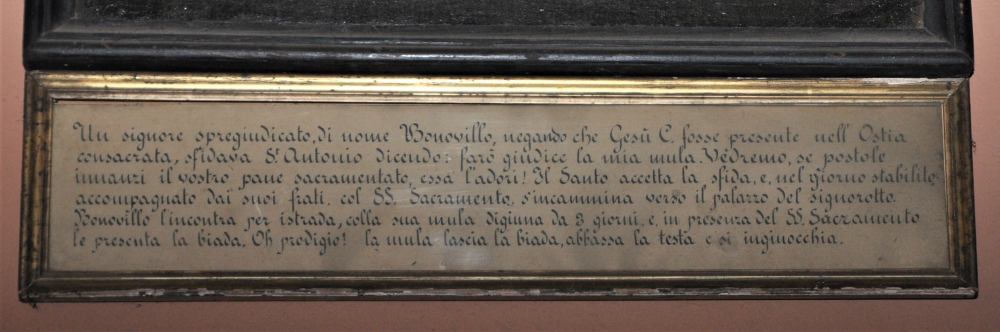 Un signore spregiudicato, di nome Bonovillo, negando che Gesù C. fosse presente nell'Ostia
consacrata, sfidava St Antonio dicendo: farò giudice la mia mula. Vedremo, se postole
innanzi il vostro pane sacramentato, essa l'adori! Il Santo accetta la sfida, e, nel giorno stabilito,
accompagnato dai suoi frati, col SS. Sacramento, s'incammina verso il palazzo del signorotto.
Bonovillo l'incontra per istrada, colla sua mula digiuna da 3 giorni, e, in presenza del SS. Sacramento
le presenta la biada. Oh prodigio! la mula lascia la biada, abbassa la testa e si inginocchia.